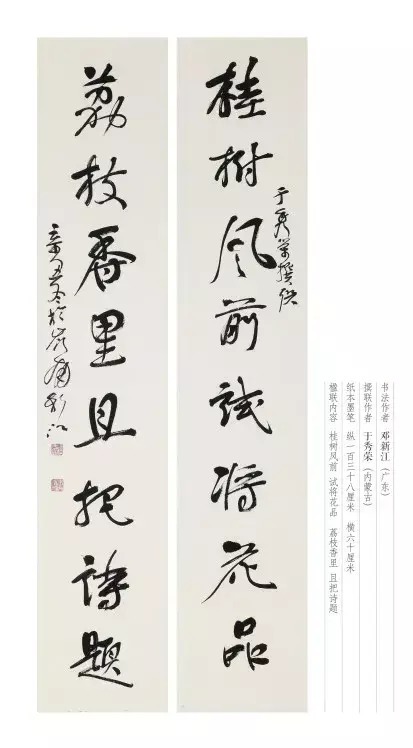 书法作者 邓新江（广东）
撰联作者 于秀荣（内蒙古）
纸本墨笔 纵一百三十八厘米 横六十厘米
楹联内容 桂树风前 试将花品 荔枝香里 且把诗题
桂树风前試将花品
于秀榮撰联
荔枝香里且把诗題
辛丑冬於岭南新江